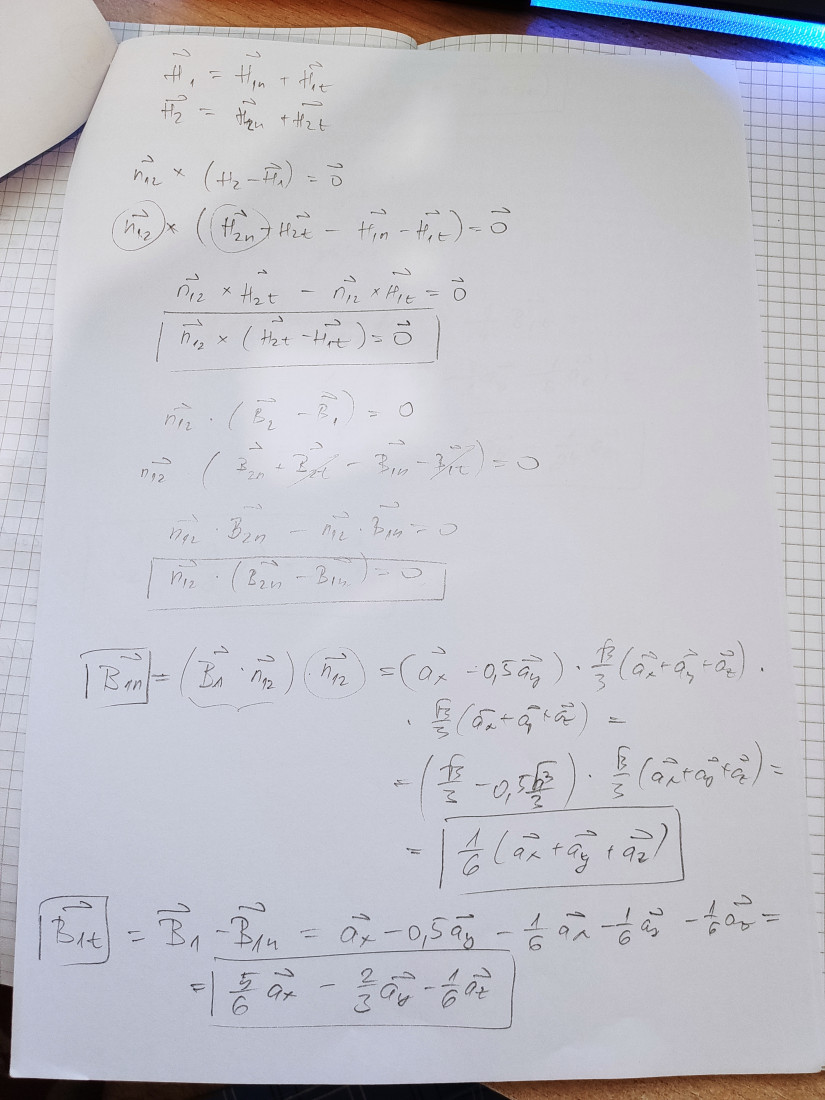 $\vec{H}_1 = \vec{H}_{1n} + \vec{H}_{1t}$
$\vec{H}_2 = \vec{H}_{2n} + \vec{H}_{2t}$
$\vec{n}_{12} \times (\vec{H}_2 - \vec{H}_1) = \vec{0}$
$\vec{n}_{12} \times (\vec{H}_{2n} + \vec{H}_{2t} - \vec{H}_{1n} - \vec{H}_{1t}) = \vec{0}$
$\vec{n}_{12} \times \vec{H}_{2t} - \vec{n}_{12} \times \vec{H}_{1t} = \vec{0}$
$\vec{n}_{12} \times (\vec{H}_{2t} - \vec{H}_{1t}) = \vec{0}$
$\vec{n}_{12} \cdot (\vec{B}_2 - \vec{B}_1) = 0$
$\vec{n}_{12} (\vec{B}_{2n} + \vec{B}_{2t} - \vec{B}_{1n} - \vec{B}_{1t}) = 0$
$\vec{n}_{12} \cdot \vec{B}_{2n} - \vec{n}_{12} \cdot \vec{B}_{1n} = 0$
$\vec{n}_{12} \cdot (\vec{B}_{2n} - \vec{B}_{1n}) = 0$
$\vec{B}_{1n} = (\vec{B}_1 \cdot \vec{n}_{12}) \cdot \vec{n}_{12} = (\vec{a}_x - 0,5\vec{a}_y) \cdot \frac{\sqrt{3}}{3} (\vec{a}_x + \vec{a}_y + \vec{a}_z) \cdot$
$\cdot \frac{\sqrt{3}}{3} (\vec{a}_x + \vec{a}_y + \vec{a}_z) =$
$= (\frac{\sqrt{3}}{3} - 0,5\frac{\sqrt{3}}{3}) \cdot \frac{\sqrt{3}}{3} (\vec{a}_x + \vec{a}_y + \vec{a}_z) =$
$= \frac{1}{6} (\vec{a}_x + \vec{a}_y + \vec{a}_z)$
$\vec{B}_{1t} = \vec{B}_1 - \vec{B}_{1n} = \vec{a}_x - 0,5\vec{a}_y - \frac{1}{6}\vec{a}_x - \frac{1}{6}\vec{a}_y - \frac{1}{6}\vec{a}_z =$
$= \frac{5}{6}\vec{a}_x - \frac{2}{3}\vec{a}_y - \frac{1}{6}\vec{a}_z$